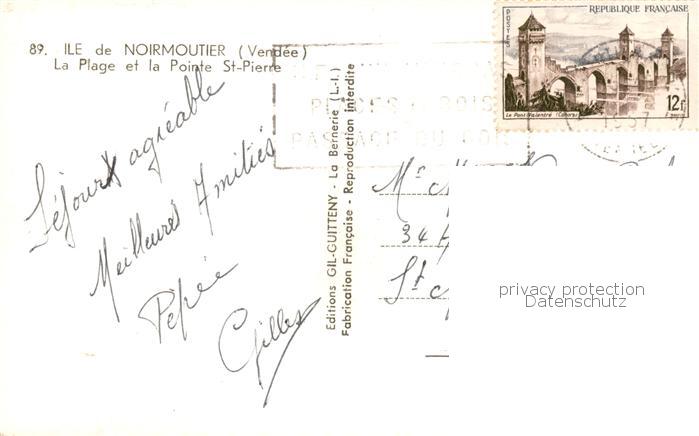 89. ILE de NOIRMOUTIER (Vendée)
La Plage et la Pointe St-Pierre
Séjour agréable
Meilleures Amitiés
Pépée
Gilles
Editions GIL-GUITTENY - La Bernerie (L.-I.)
Fabrication Française - Reproduction interdite
POSTES
REPUBLIQUE FRANÇAISE
12F
Le Pont Valentré (Cahors)
PLAGES BOIS
PASSAGE DU GOIS
1957
Mr
34
St
privacy protection
Datenschutz